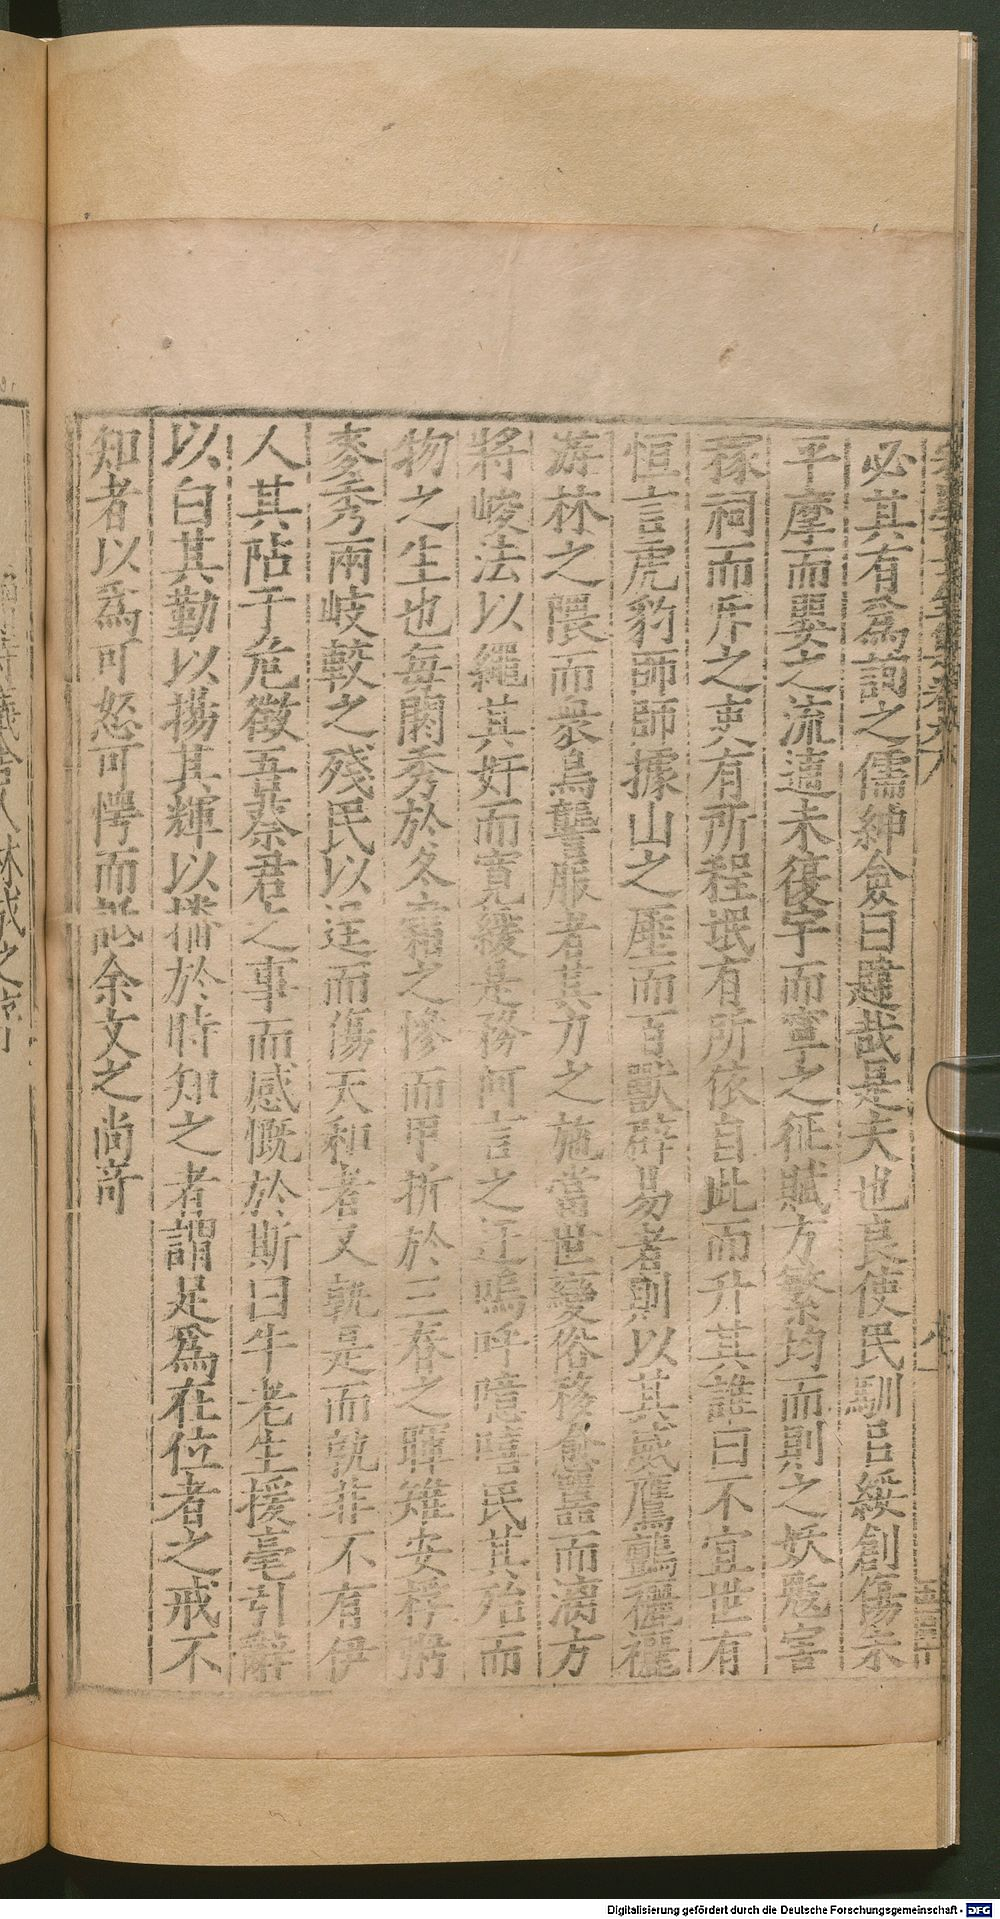 必其有爲詞之儒紳僉曰韙哉是夫也良使民馴吕綏創傷未
平摩而嬰之流遺未復宇而寧之征賦方繁均而則之妖寇害
稼祠而斥之吏有所程氓有所依自此而升其誰曰不宜世有
恒言虎豹師師據山之厓而百獸辟易者則以其威鷹鸇襹襹
游林之隈而衆鳥讋服者其力之施當世變俗移愈囂而漓方
將峻法以繩其奸而寬緩是務何言之迂嗚呼噫嘻民其殆而
物之生也每閟秀於冬霜之慘而甲拆於三春之暉雉安桴弼
麥秀兩岐較之殘民以逞而傷天和者又孰是而孰非不有伊
人其阽于危徵吾蔡君之事而感慨於斯曰牛老生援毫引辭
以白其勤以揚其輝以播於時知之者謂足爲在位者之戒不
知者以爲可怒可愕而訟余文之尚奇
Digitalisierung gefördert durch die Deutsche Forschungsgemeinschaft - DFG